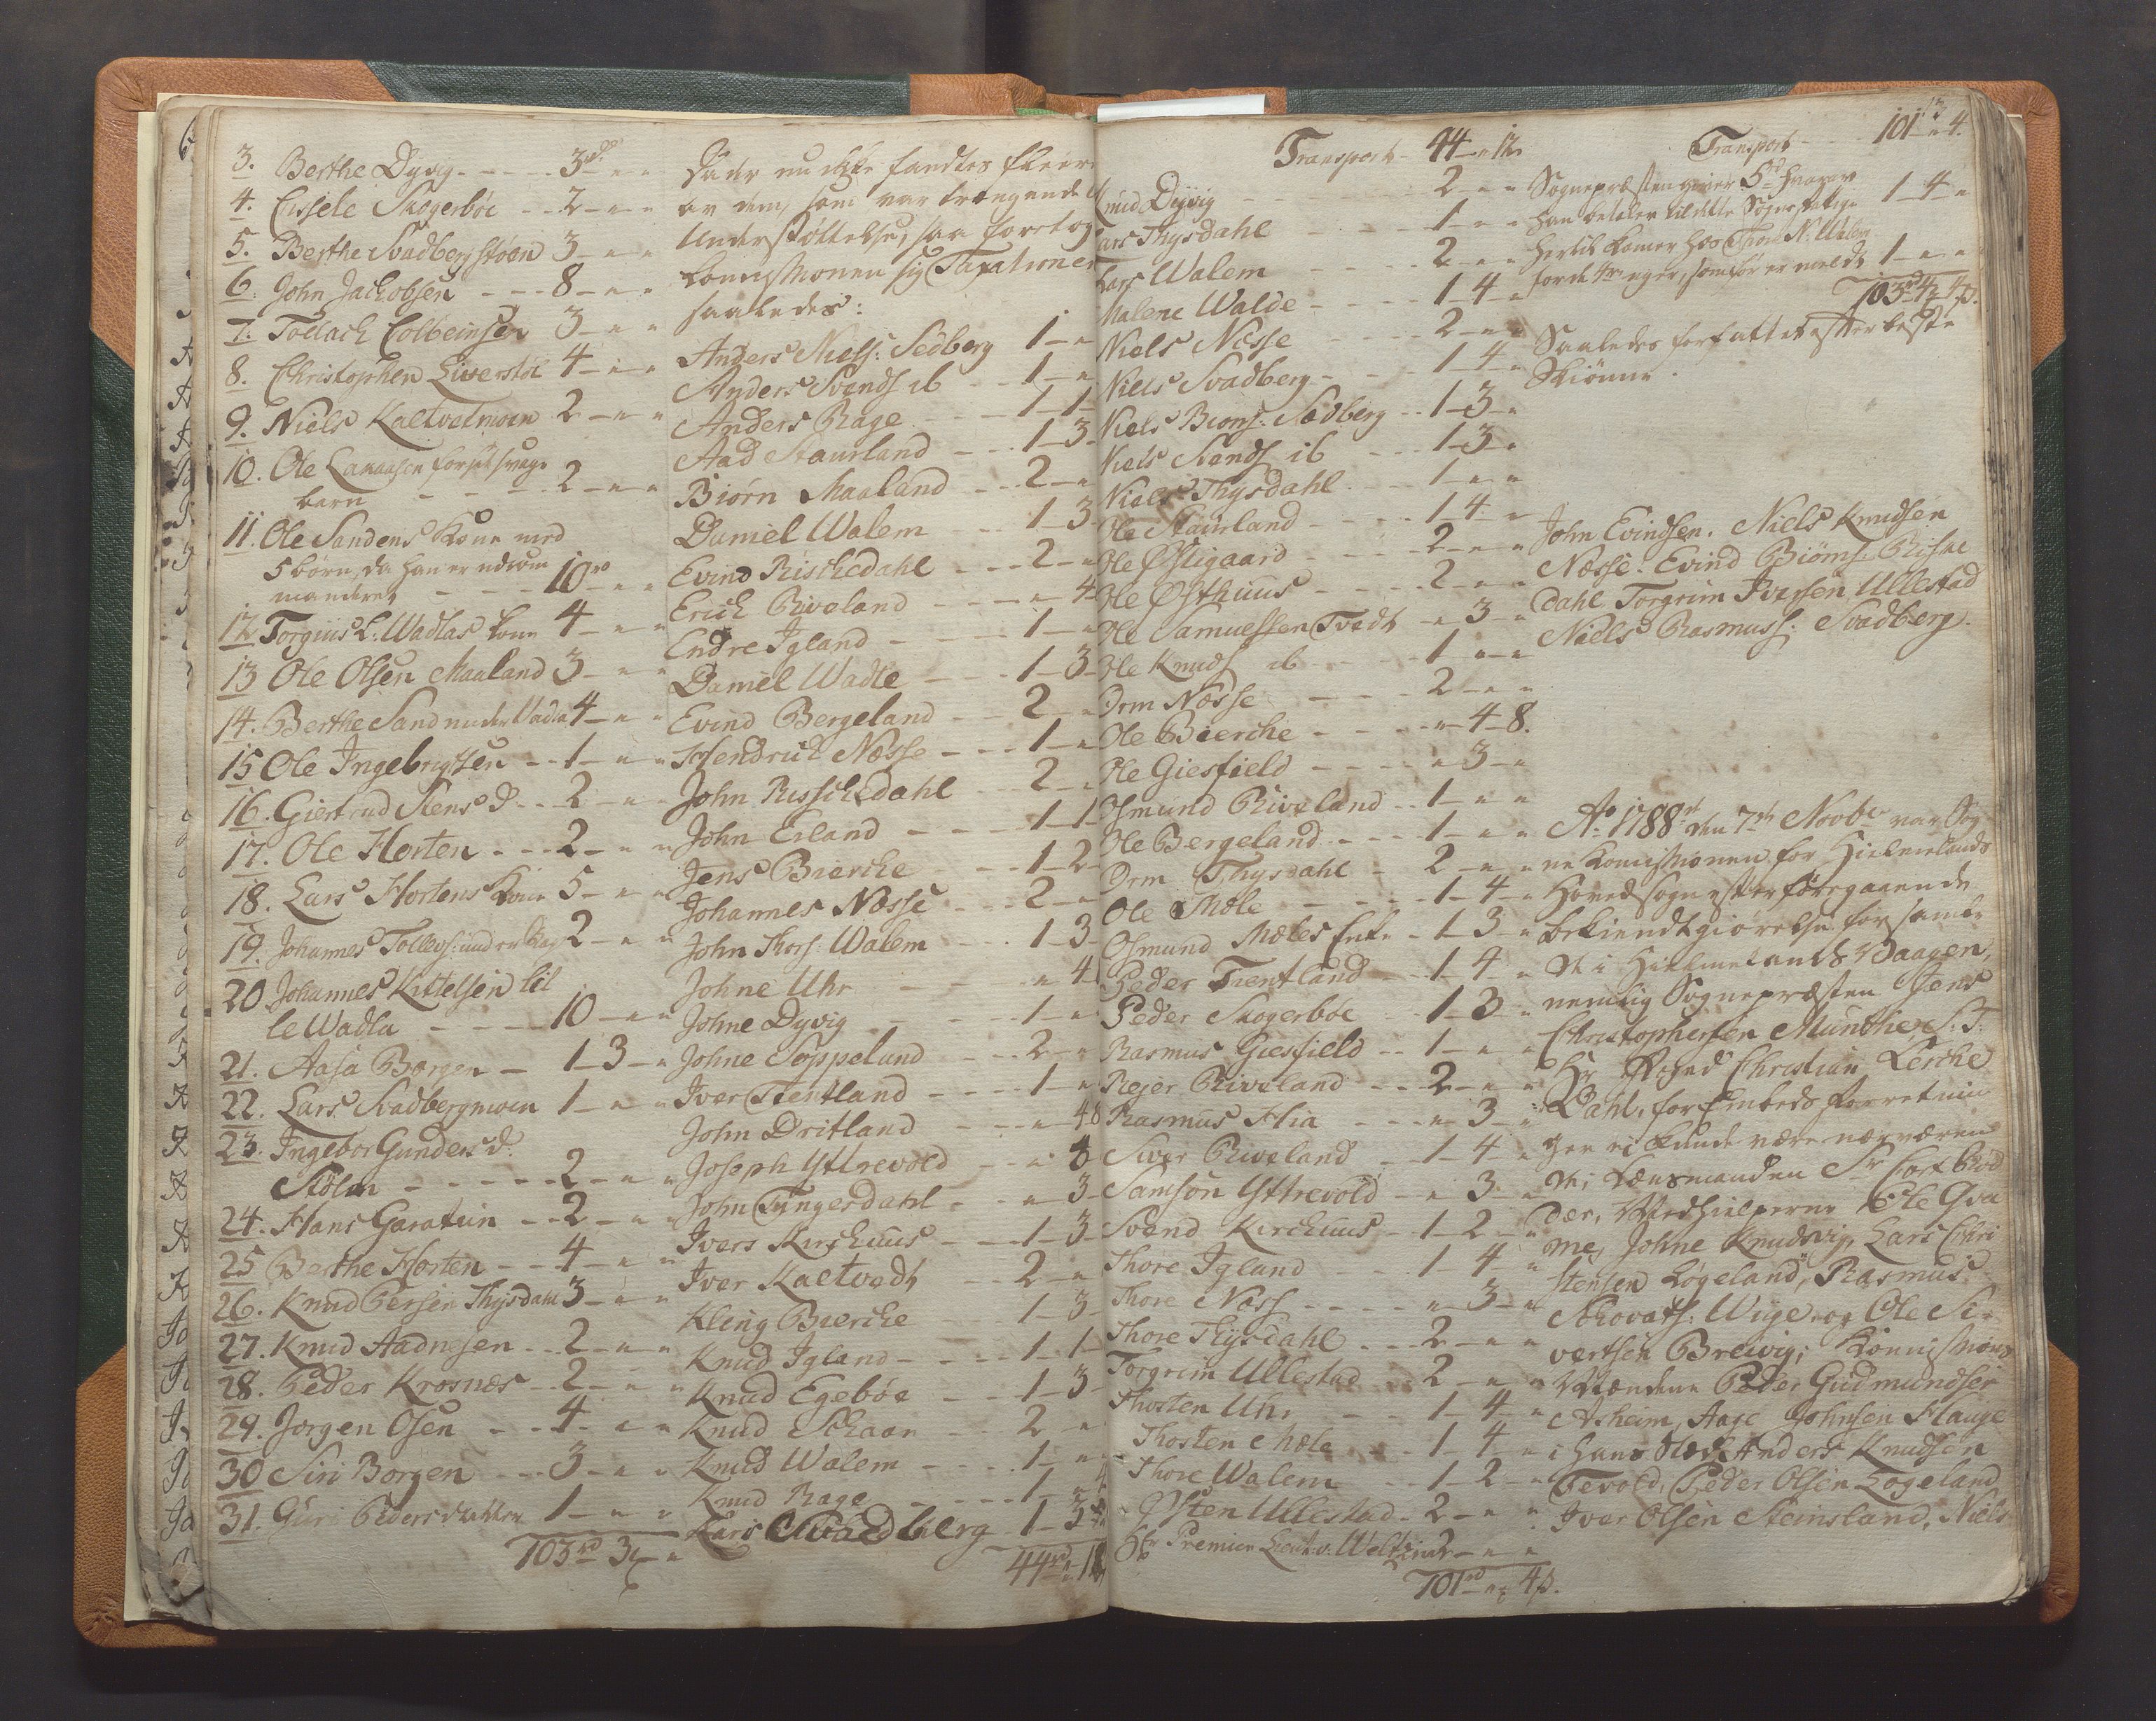 3. Berthe Dyvig - - - - 3 rd - " - "
4. Cissele Skogerbøe - - 2 - " - "
5. Berthe Svadbergstøen 3 - " - "
6. John Jackobsen - - - 8 - " - "
7. Tollach Colbeinsen 3 - " - "
8. Christophen 4 - " - "
9. Niels Kaltvetmoen 2 - " - "
10. Ole for sit svage
barn - - - 2 - " - "
11. Ole Sandens Kone med
5 børn, da han er udcom
manderet - - - 10 - " - "
12. Torgiils L: Wadlas Kone 4 - " - "
13 Ole Olsen Maaland 3 - " - "
14. Berthe Sand under Vadla 4 - " - "
15 Ole Ingebrigtsen - - 1 - " - "
16. Giertrud Stens D. - - 2 - " - "
17. Ole Horten - - - 2 - " - "
18. Lars Hortens Kone 5 - " - "
19. Johannes Tollevs: under 2 - " - "
20 Johannes Kittelsen lil
le Wadla - - - - 10 - " - "
21. Aasa Borgen - 1 - 3 - "
22. Lars Svadbergmoen 1 - " - "
23. Ingebor Gunders d:
Stølen - - - - - 2 - " - "
24. Hans Garatun - - 2 - " - "
25 Berthe Horten - - 4 - " - "
26. Knud Persen Thysdahl 3 - " - "
27. Knud Aadnesen - - 2 - " - "
28. Peder Krosnæs - - 2 - " - "
29. Jorgen Osen - - 4 - " - "
30 Siri Borgen - - - 3 - " - "
31. Guri Peders datter 1 - " - "
103 rd 3 - "
Da der nu ikke fandtes fleere
av dem, som var trængende
Understøttelse, saa foretog
Commissionen sig Taxationen
saaledes:
Anders Nielss: Sedberg 1 - "
Anders Svends ib - - 1 - "
Anders Rage - - - 1 - 1 -
Aad Staurland - - - 1 - 3 -
Biørn Maaland - - - 2 - "
Daniel Walem - - 1 - 3 -
Evind Rischedahl - - - 2 - "
Erich Riveland - - - - " - 4 -
Endre Igland - - - - - 1 - "
Daniel Wadle - - - - 1 - 3 -
Evind Bergeland - - 2 - "
Hendrich Næsse - - - 1 - "
John Risschedahl - - 2 - "
John Erland - - - - 1 - 1 -
Jens Bierche - - - 1 - 2 -
Johannes Næsse - - - 2 - "
John Thors: Walem - - - 1 - 3 -
Johne Uhr - - - " - 4
Johne Dyvig - - - 1 - "
Johne Soppeland - - - 2 - "
Iver Trentland - - - 1 - "
John Dritland - - - " - 4 8
Joseph Yttrevold - - " - 3
John Tyngesdahl - - " - 3 -
Ivers Kirchuus - - - 1 - 3 -
Iver Kaltvedt - - 2 - "
Kling Bierche - - 1 - 3 -
Knud Igland - - - - 1 - 1 -
Knud Egebøe - - - 1 - 3 -
Knud Schaar - - - 2 - "
Knud Walem - - - - 1 - "
Knud Rage - - - - 1 - "
Lars Svadberg - 1 - 3
44 rd " - 12
Transport - 44 - " - 12
Knud Dyvig - - - - 2 - " - "
Lars Thysdahl - - - - 1 - " - "
Lars Walem - - - - 2 - " - "
Malene Walde - - - - 1 - 4 - "
Niels Næsse - - - - 2 - " - "
Niels Svadberg - - - 1 - 4 - "
Niels Biorns: Sædberg - - 1 - 3 - "
Niels Svends ib - - - 1 - 3 - "
Niels Thysdahl - - - 1 - " - "
Ole Staurland - - - - 1 - 4 - "
Ole Østigaard - - - 2 - " - "
Ole Østhuus - - - - 2 - " - "
Ole Samuelsen Tvedt - " - 3 - "
Ole Knuds ib - - - - 1 - " - "
Orm Næsse - - - 2 - " - "
Ole Bierche - - - - " - 4 - 8.
Ole Giesfield - - - - " - 3 - "
Osmund Riveland - - 1 - " - "
Ole Bergeland - - - - 1 - " - "
Orm Thysdahl - - 2 - " - "
Ole Mæle - - - - 1 - 4 - "
Osmund Mæles Enke - 1 - 3 - "
Peder Trentland - - 1 - 4 - "
Peder Skogerbøe - - 1 - 3 - "
Rasmus Giesfield - - 1 - " - "
Rejer Riveland - - - 2 - " - "
Rasmus Hia - - - " - 3 - "
Siver Riveland - 1 - 4 - "
Samson Yttrevold - " - 3 - "
Svend Kirchuus - 1 - 2 - "
Thore Igland - - 1 - 4 - "
Thore Næss - - - - " - 3 - "
Thore Thysdahl - - - 2 - " - "
Torgrim Ullestad - - 2 - " - "
Thosten Uhr - - - 1 - 4 - "
Thosten Mæle - - 1 - 4 - "
Thore Walem - - - 1 - 2 - "
Østen Ullestad - 2 - " - "
Hr Premier Lieut: v: 2 - " - "
101 rd - " - 4 ß.
Transport - - - 101 " 4.
Sognepræsten giver 5 rd hvorav
han betaler til dette Sogns fattige 1 - 4 - "
hertil kommer hos Thore N: Walem
for de 4 som før er meldt 1 - " - "
103 rd 4 4 ß.
Saaledes forfattet efter beste
Skiønne.
John Evindsen. Niels Knudsen
Næsse. Evind Biørns: Riske
dahl Torgrim Iversen Ullestad
Niels Rasmuss: Svadberg.
Ao 1788 den 7de Novbr var Sog
ne Komissionen for Hielmelands
Hovedsogn efter føregaaende
bekiendtgiørelse forsamle
det i Hielmelands Vaagen,
nemlig Sognepræsten Jens
Christophersen Munthe, S: T:
Hr Foged Christian Lerche
Dahl, for Embeds Forretnin
ger ei kunde være nærværen
de; Lænsmanden Sr
Medhielperne Ole
me, Johne Knudsvig, Lars Chri
stensen Løgeland, Rasmus
Wiige og Ole Si-
vertsen Breivig; Kommissions
Mændene Peder Gudmundsen
Asheim, Aage Johnsen Hauge
i hans Sted Anders Knudsen
Tevold, Peder Olsen Løgeland
Iver Olsen Steinsland, Niels